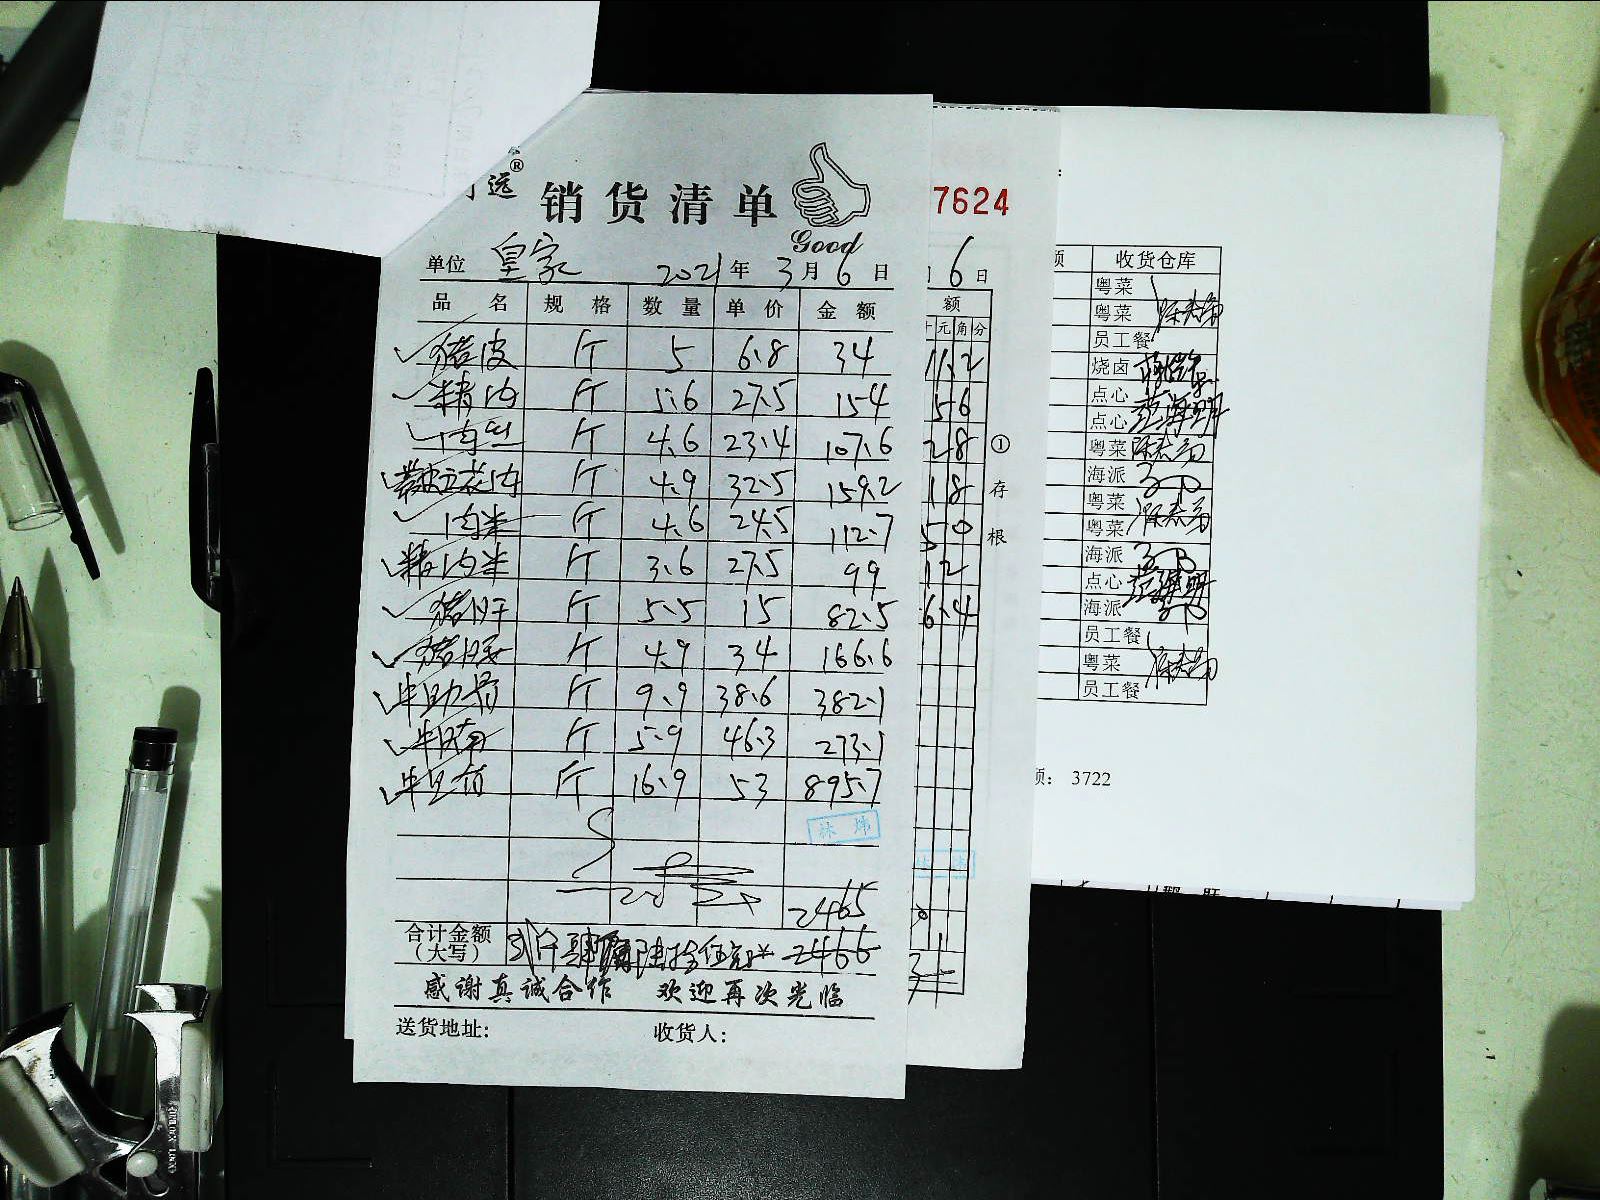 远®
销货清单
Good
单位 皇家 2021年3月6日
品名 规格 数量 单价 金额
猪皮 斤 5 6.8 34
精肉 斤 5.6 27.5 154
肉丝 斤 4.6 23.4 107.6
带皮五花肉 斤 4.9 32.5 159.2
肉米 斤 4.6 24.5 112.7
精肉米 斤 3.6 27.5 99
猪肝 斤 5.5 15 82.5
猪腰 斤 4.9 34 166.6
牛肋骨 斤 9.9 38.6 382.1
牛腩 斤 5.9 46.3 273.1
斤 16.9 53 895.7
林炜
2465
合计金额
(大写) 2466
感谢真诚合作 欢迎再次光临
送货地址: 收货人:
7624
6日
额
元角分
11.2
56
28
18
50
12
6.4
①
存
根
收货仓库
粤菜
粤菜
员工餐
烧卤
点心
点心
粤菜
海派
粤菜
粤菜
海派
点心
海派
员工餐
粤菜
员工餐
额: 3722